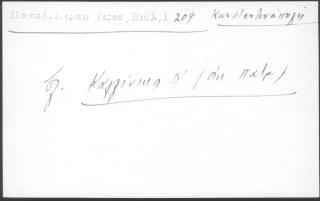 Παπαδ. Κεραμ Ιεροσ. Βιβλ, I 209 Κωνσταντινούπολη
βλ. Καλλίνικος Β' (οἰκ πατρ)